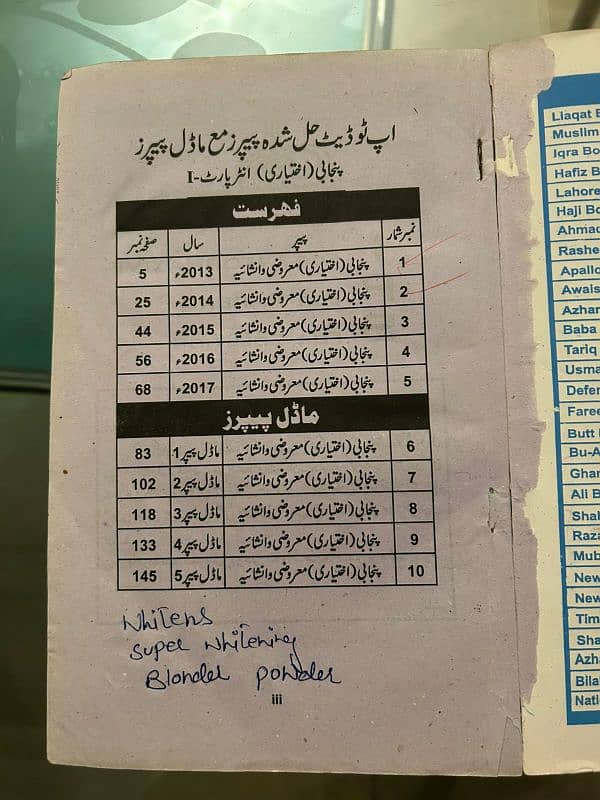 اپ ٹو ڈیٹ حل شدہ پیپرز مع ماڈل پیپرز
پنجابی (اختیاری) انٹر پارٹ-I
فہرست
نمبر شمار پیپر سال صفحہ نمبر
1 پنجابی (اختیاری) معروضی و انشائیہ 2013ء 5
2 پنجابی (اختیاری) معروضی و انشائیہ 2014ء 25
3 پنجابی (اختیاری) معروضی و انشائیہ 2015ء 44
4 پنجابی (اختیاری) معروضی و انشائیہ 2016ء 56
5 پنجابی (اختیاری) معروضی و انشائیہ 2017ء 68
ماڈل پیپرز
6 پنجابی (اختیاری) معروضی و انشائیہ ماڈل پیپر 1 83
7 پنجابی (اختیاری) معروضی و انشائیہ ماڈل پیپر 2 102
8 پنجابی (اختیاری) معروضی و انشائیہ ماڈل پیپر 3 118
9 پنجابی (اختیاری) معروضی و انشائیہ ماڈل پیپر 4 133
10 پنجابی (اختیاری) معروضی و انشائیہ ماڈل پیپر 5 145
Whitens
super whitening
Blonder powder
iii
Liaqat B
Muslim
Iqra Bo
Hafiz B
Lahore
Haji Bo
Ahmad
Rashe
Apallo
Awais
Azhar
Baba
Tariq
Usma
Defen
Faree
Butt
Bu-A
Ghar
Ali B
Shal
Raza
Mub
New
New
Tim
Sha
Azha
Bilal
Nati